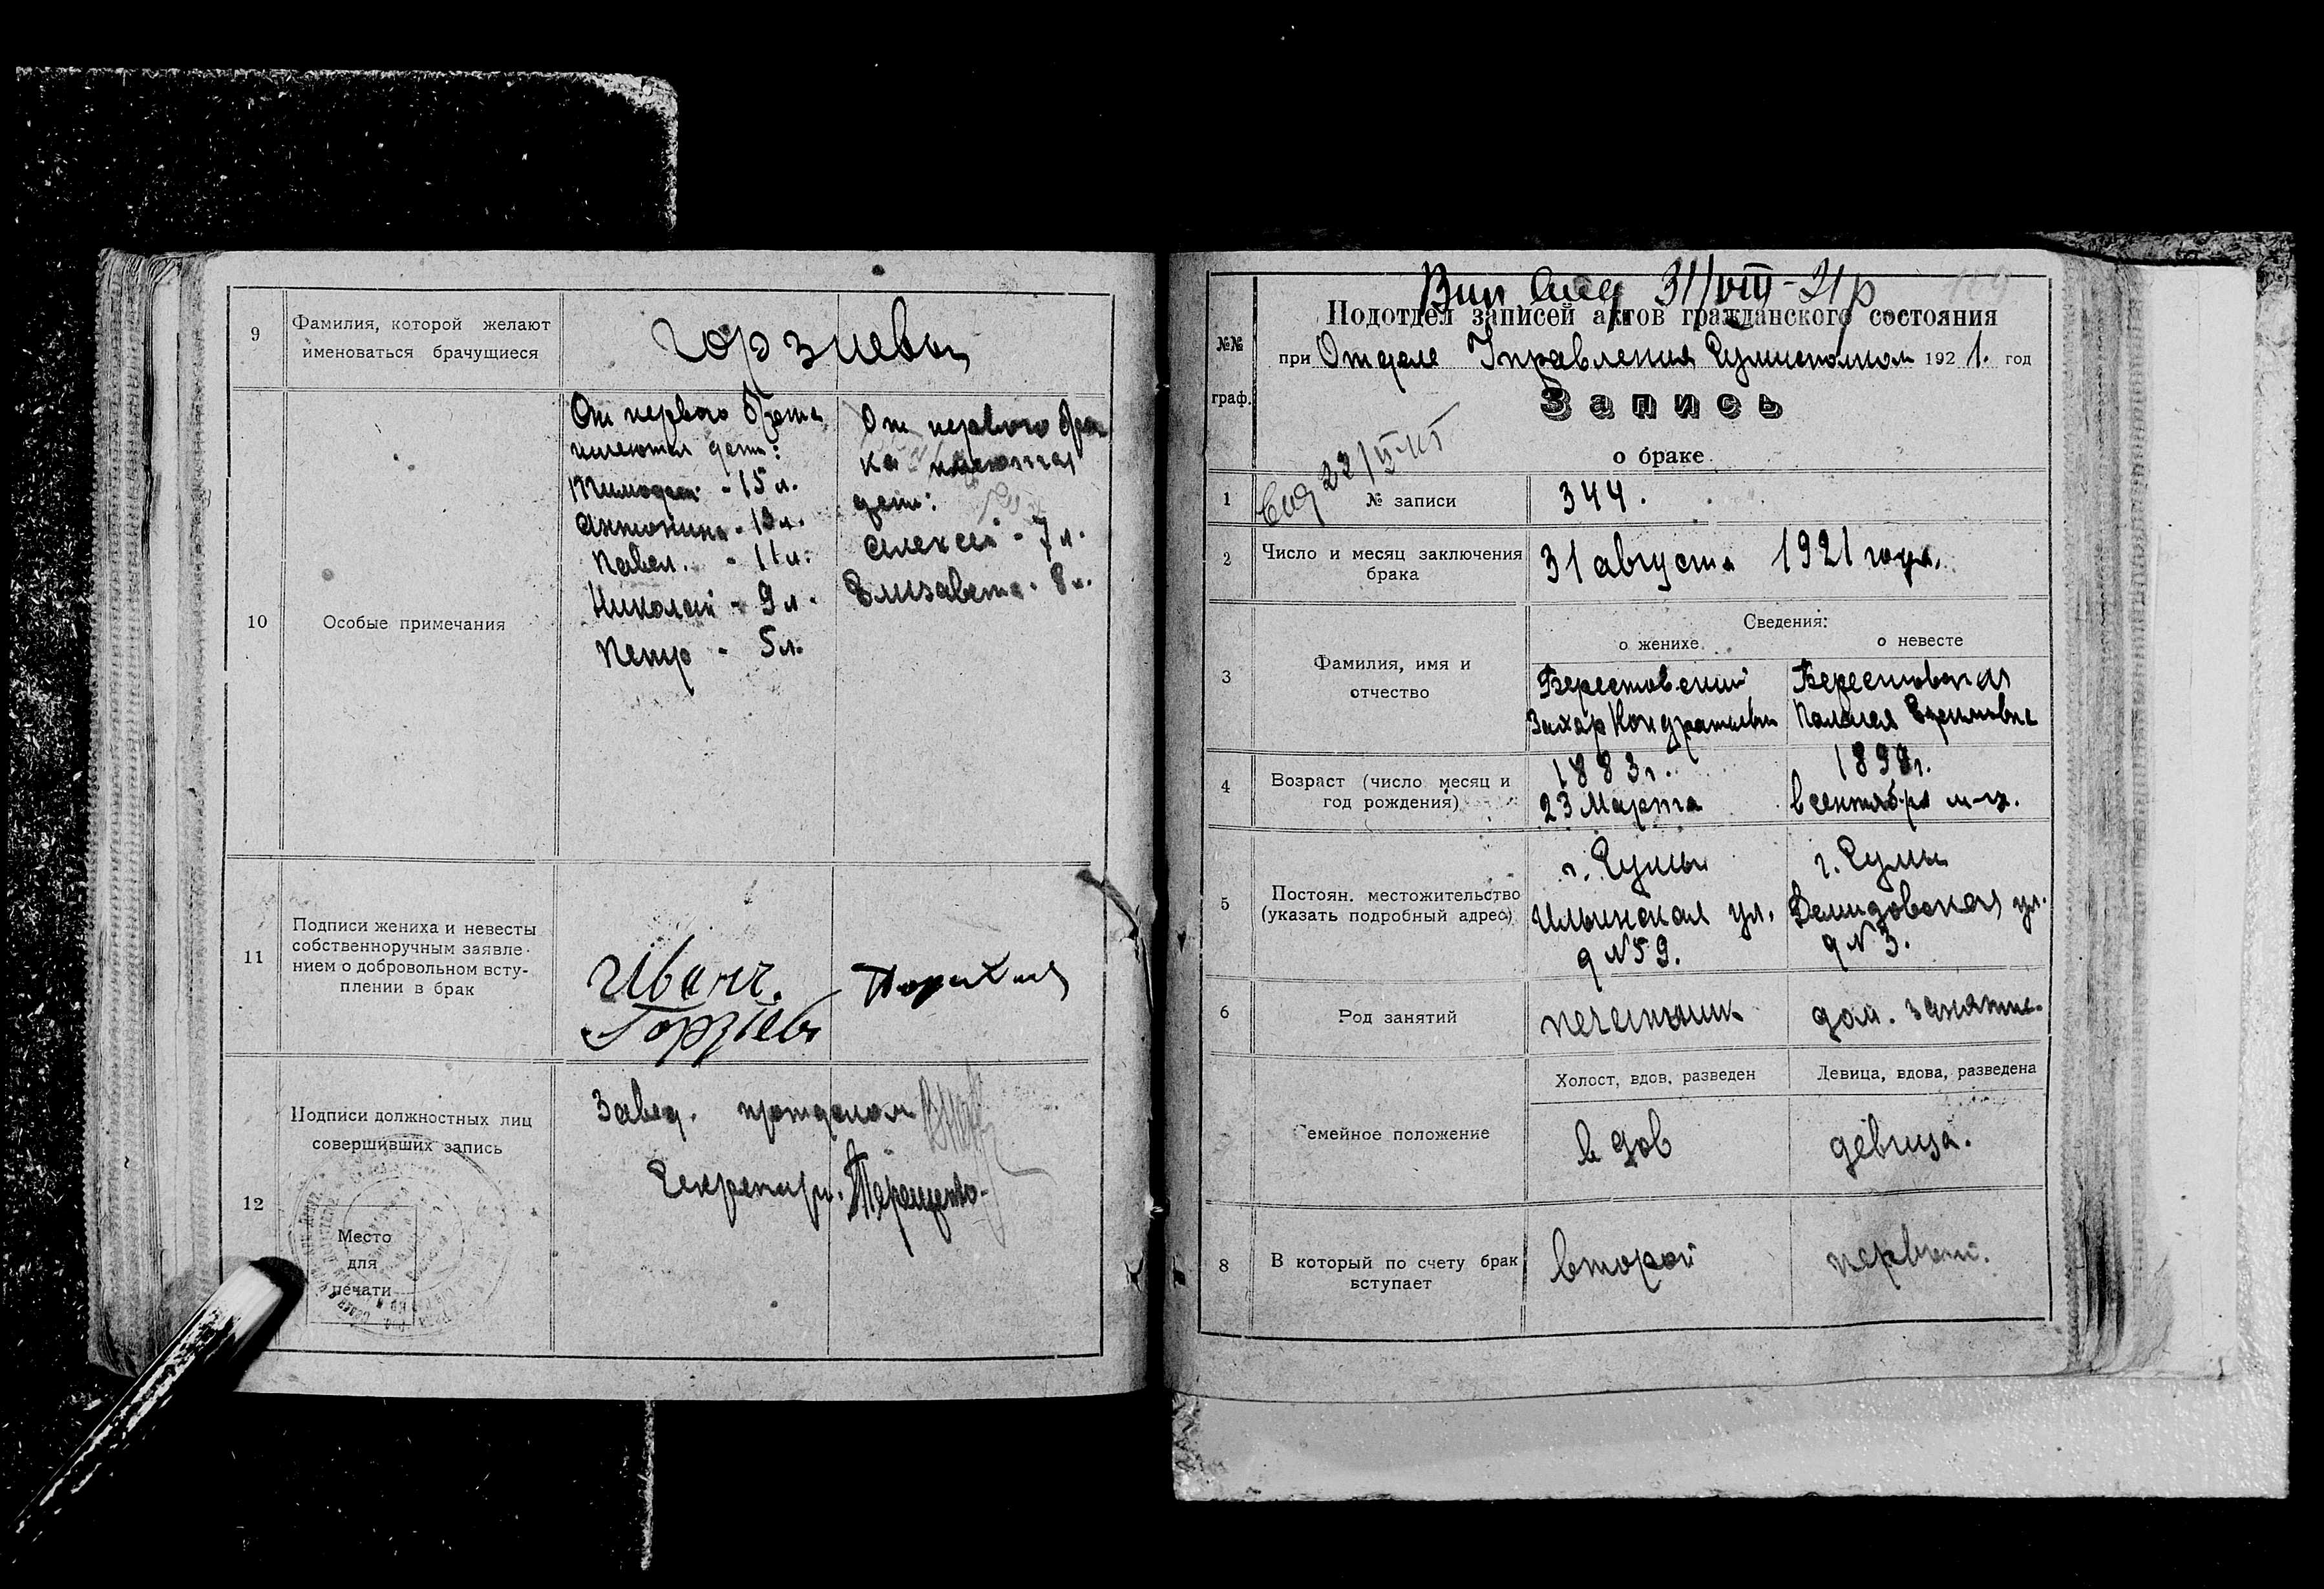 9
Фамилия, которой желают
именоваться брачущиеся
Горзиевы
10
Особые примечания
От первого брака
имеются дети:
Тимофей - 15 л.
Антонина - 13 л.
Павел. - 11 л.
Николай - 9 л.
Петр - 5 л.
От первого бра
ка имеются
дети:
Алексей - 7 л.
Елизавета - 8 л.
11
Подписи жениха и невесты
собственноручным заявле-
нием о добровольном всту-
плении в брак
Иванъ
Горзіевъ
12
Подписи должностных лиц
совершивших запись
Завед. подотделом
Секретарь.
Место
для
печати
31/VIII-21 р
Подотдел записей актов гражданского состояния
№№
граф.
при Отделе Управления Сумисполком 1921. год
Запись
о браке.
1
№ записи
344.
2
Число и месяц заключения
брака
31 августа 1921 года.
3
Фамилия, имя и
отчество
Сведения:
о женихе
о невесте
Берестовский
Захар Кондратьевич
Берестовская
Палагея Ефимовна
4
Возраст (число месяц и
год рождения)
1883 г.
23 Марта
в сентябре м-це.
5
Постоян. местожительство
(указать подробный адрес)
г. Сумы
Ильинская ул.
д № 59.
г. Сумы
Демидовская ул.
д № 3.
6
Род занятий
дом. занятие.
Семейное положение
Холост, вдов, разведен
Девица, вдова, разведена
вдов
девица.
8
В который по счету брак
вступает
второй
первый.